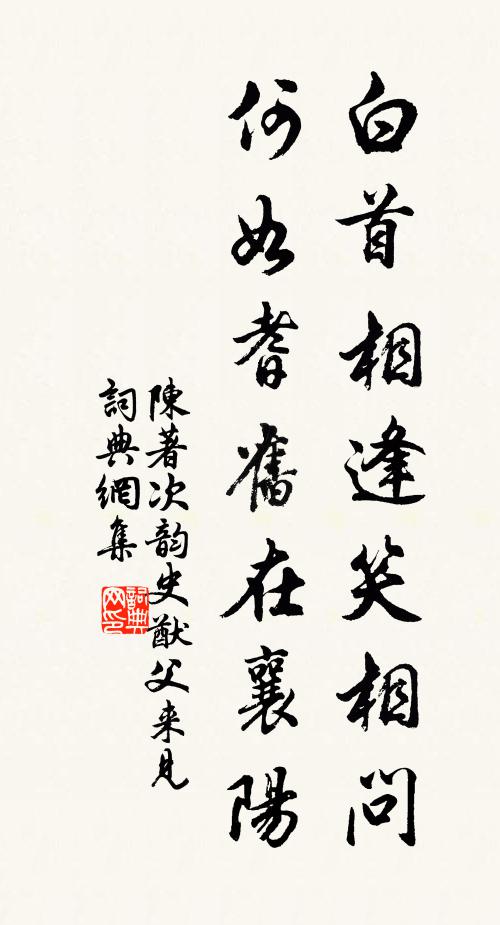 白首相逢笑相問
何如耆舊在襄陽
陳著次韵史猷父来見
詞典網集
詞典网印